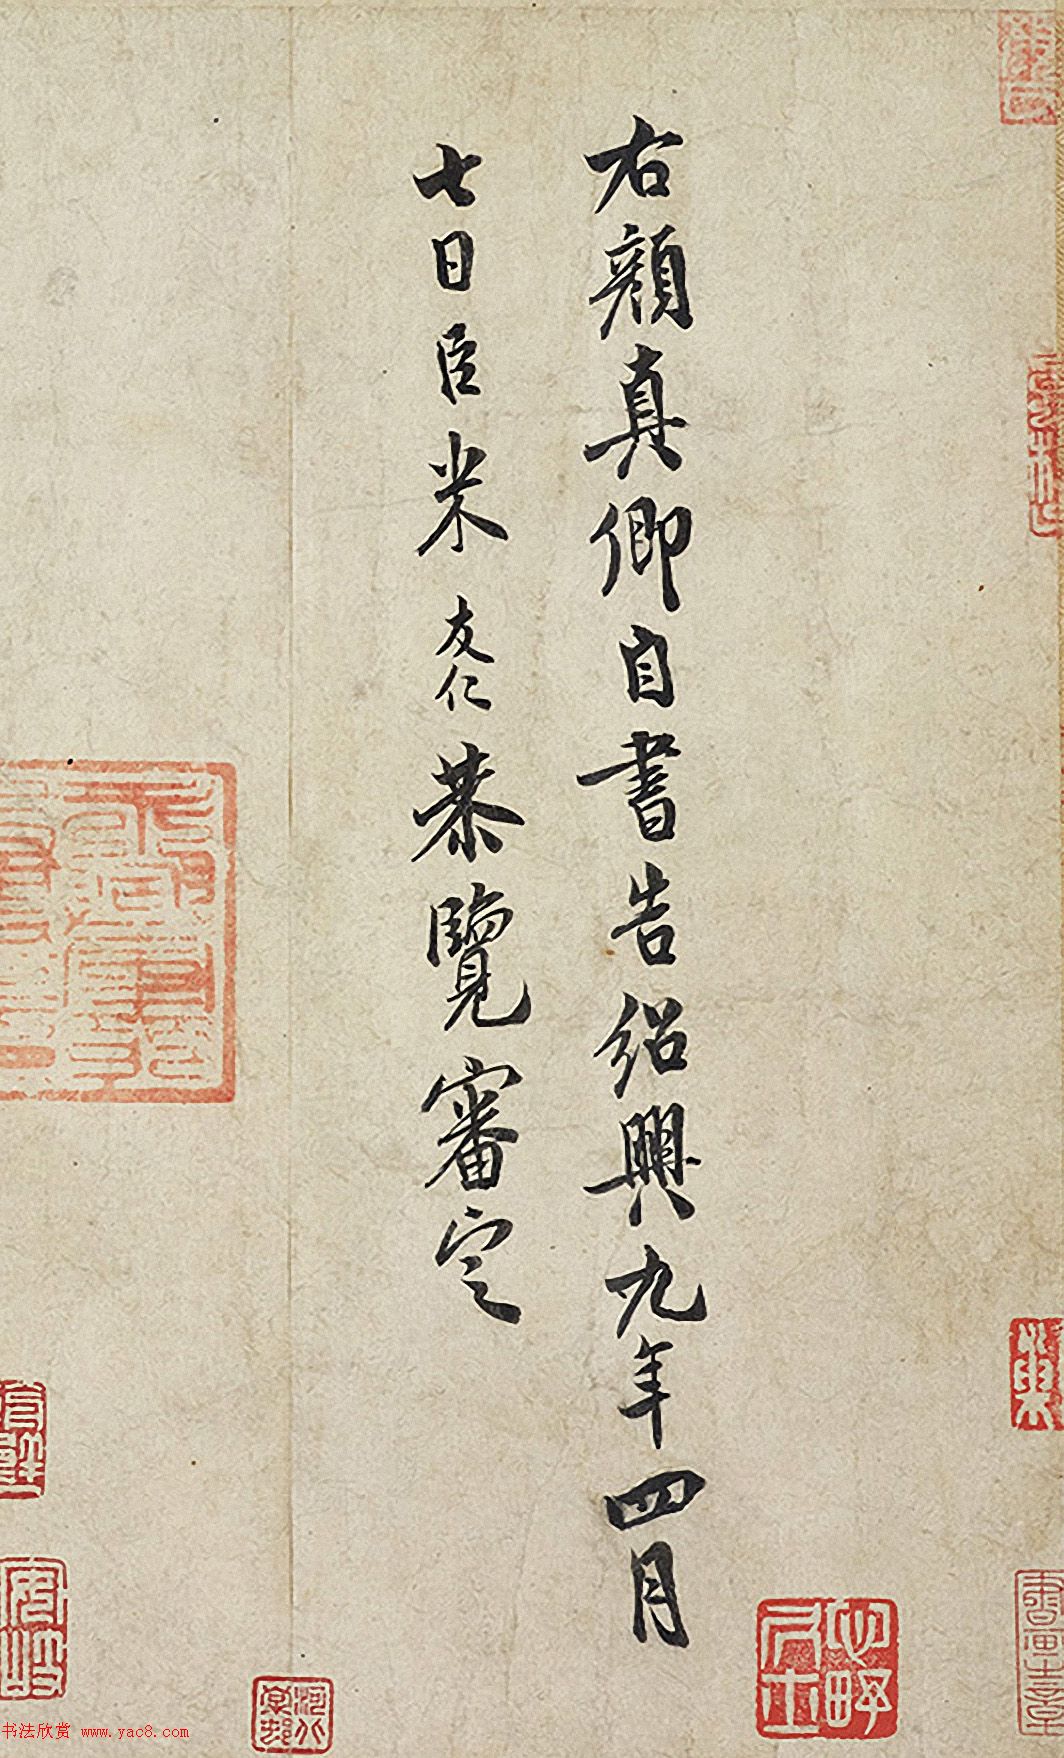 右顏真卿自書告紹興九年四月
七日臣米友仁恭覽審定
书法欣赏 www.yac8.com